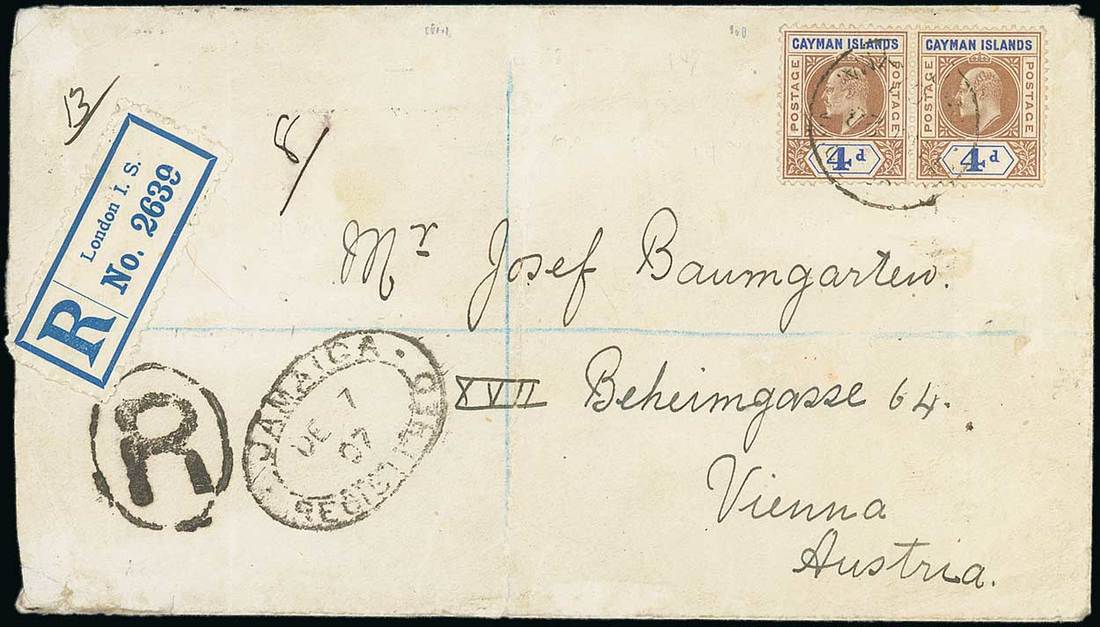 CAYMAN ISLANDS
POSTAGE POSTAGE
4d
CAYMAN ISLANDS
POSTAGE POSTAGE
4d
13
8
London I. S.
R No. 2639
Mr Josef Baumgarten.
XVII Beheimgasse 64.
Vienna
Austria.
R
JAMAICA
DE 7
07
REGISTERED